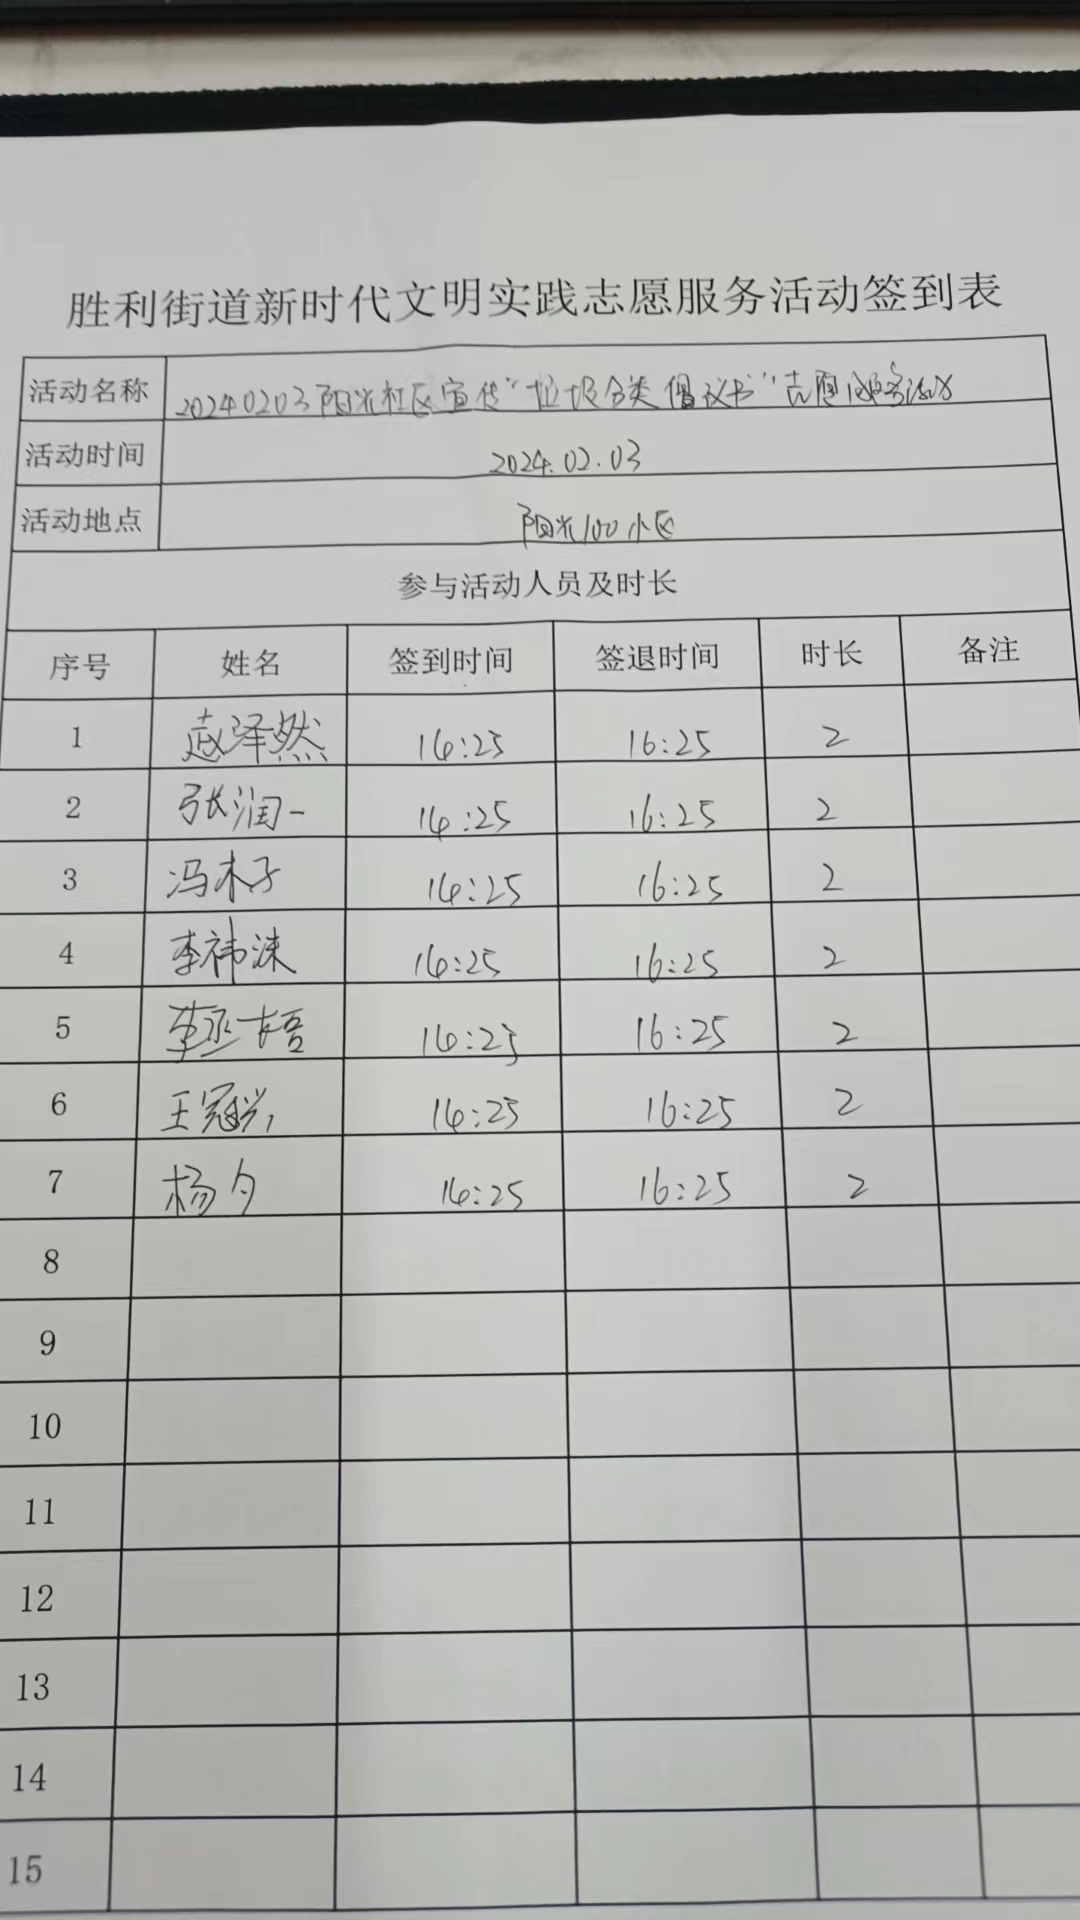 胜利街道新时代文明实践志愿服务活动签到表
活动名称 20240203阳光社区宣传"垃圾分类倡议书"志愿服务活动
活动时间 2024.02.03
活动地点 阳光100小区
参与活动人员及时长
序号 姓名 签到时间 签退时间 时长 备注
1 赵泽然 14:25 16:25 2
2 张润一 14:25 16:25 2
3 冯木子 14:25 16:25 2
4 李祎涑 14:25 16:25 2
5 14:25 16:25 2
6 王冠 14:25 16:25 2
7 杨夕 14:25 16:25 2
8
9
10
11
12
13
14
15